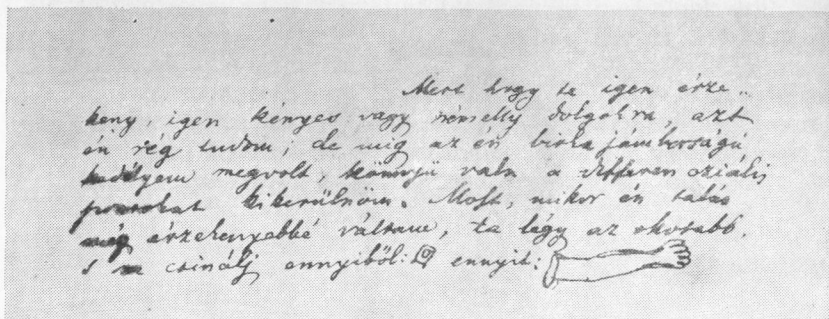 Mert hogy te igen érze-
keny, igen kényes vagy némelly dolgokra, azt
én rég tudom; de míg az én birka jámborságú
kedélyem megvolt, könnyü valn a differen
kikerülnöm. Most, mikor én talán
még érzékenyebbé váltam, te légy az okosabb.
s ne csinálj ennyiből: ennyit: